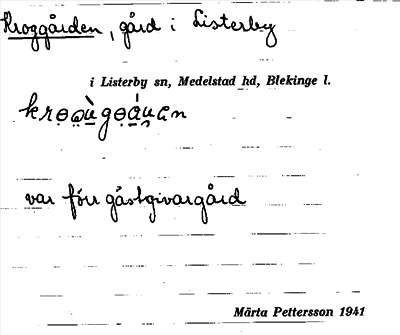 Kroggården, gård i Listerby
i Listerby sn, Medelstad hd, Blekinge l.
var förr gästgivargård
Märta Pettersson 1941